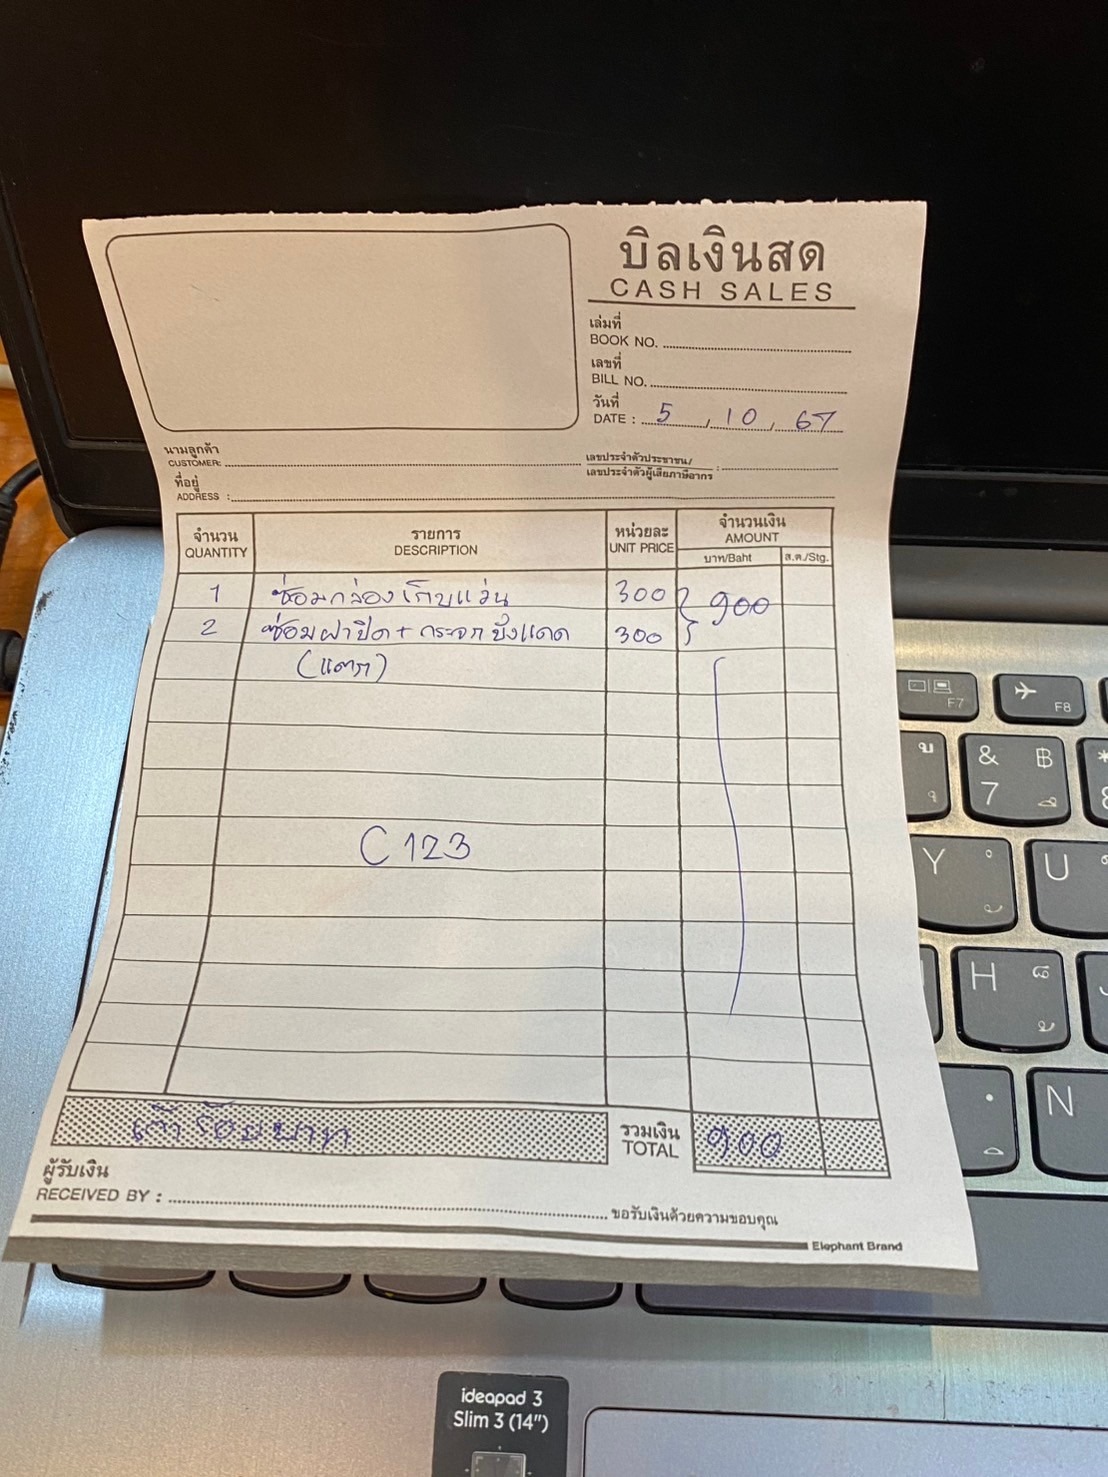 บิลเงินสด
CASH SALES
เล่มที่
BOOK NO.
เลขที่
BILL NO.
วันที่
DATE : 5 , 10 , 67
นามลูกค้า
CUSTOMER:
เลขประจำตัวประชาชน/
เลขประจำตัวผู้เสียภาษีอากร :
ที่อยู่
ADDRESS :
จำนวน รายการ หน่วยละ จำนวนเงิน
QUANTITY DESCRIPTION UNIT PRICE AMOUNT
บาท/Baht ส.ต./Stg.
1 ซ่อมกล่องเก็บแว่น 300 900
2 ซ่อมฝาปิด + กระจกบังแดด 300
(แตก)
C 123
เก้าร้อยบาท รวมเงิน
TOTAL 900
ผู้รับเงิน
RECEIVED BY : ขอรับเงินด้วยความขอบคุณ
Elephant Brand
F7 F8
ข & ฿ *
ๅ 7 8
Y U
H N
ideapad 3
Slim 3 (14")